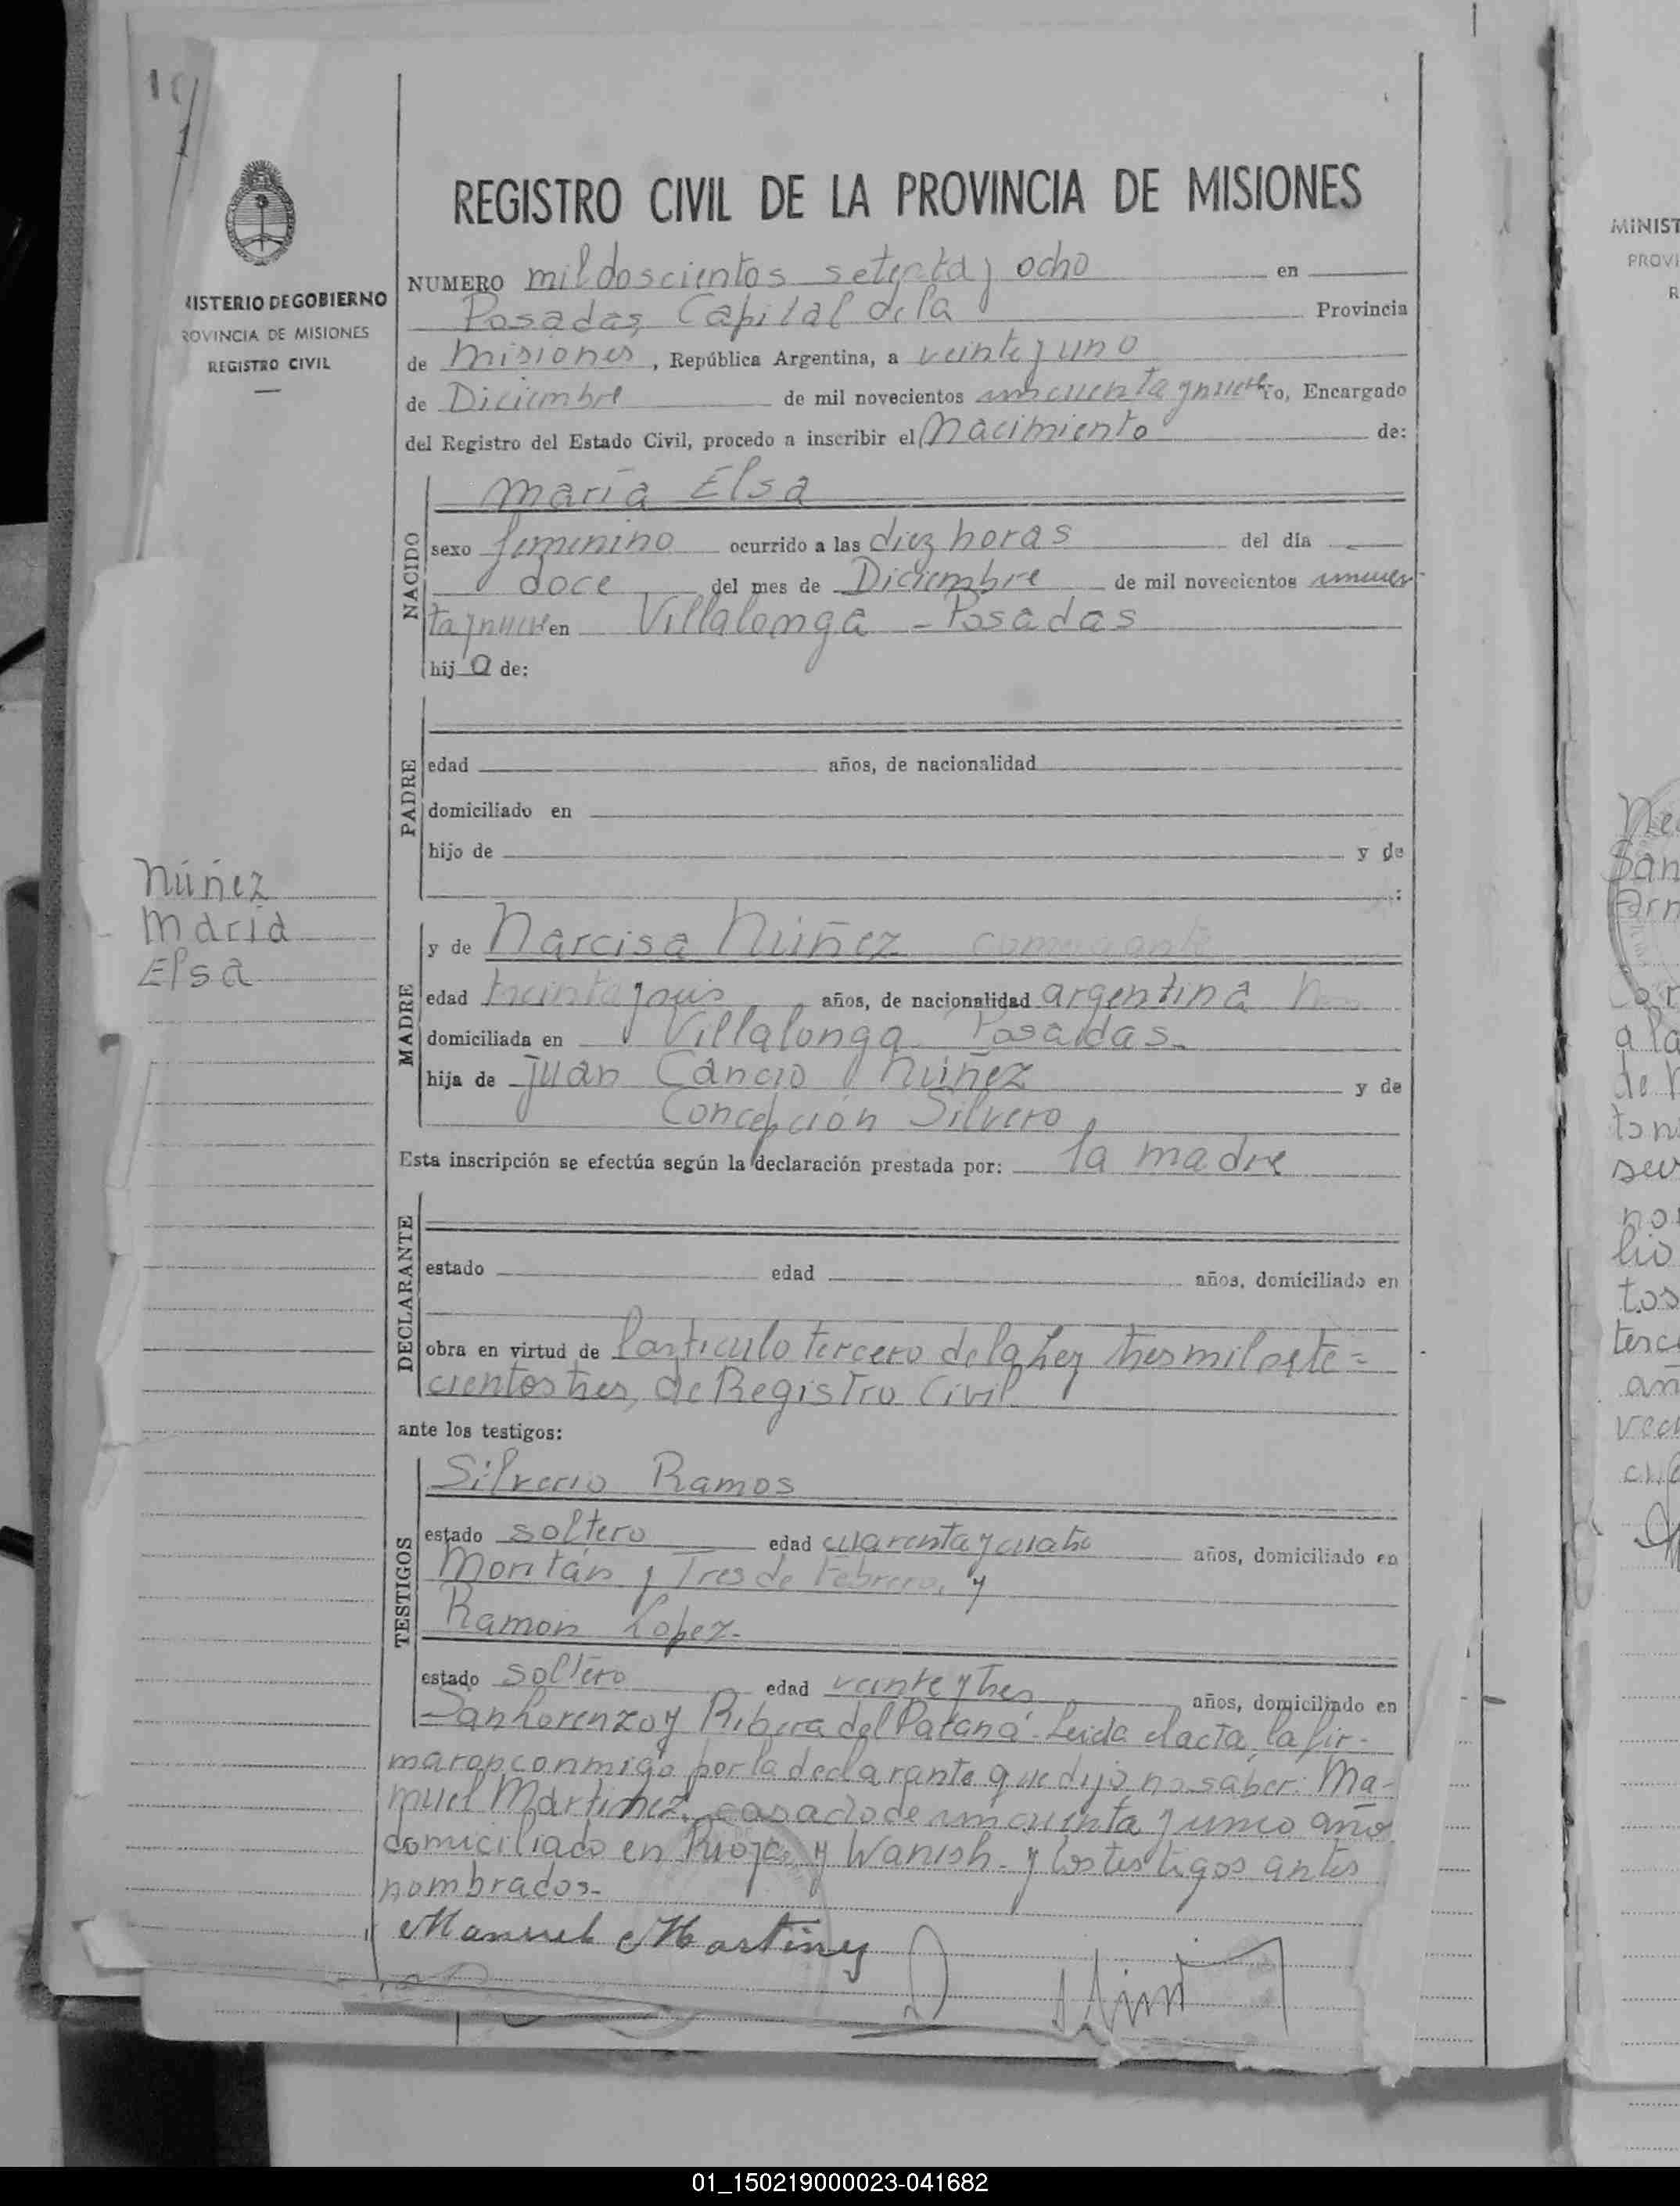 MINISTERIO DE GOBIERNO
PROVINCIA DE MISIONES
REGISTRO CIVIL
REGISTRO CIVIL DE LA PROVINCIA DE MISIONES
NUMERO mil doscientos setenta y ocho en
Posadas, Capital de la Provincia
de Misiones, República Argentina, a veinte y uno
de Diciembre de mil novecientos cincuenta y nueve ro, Encargado
del Registro del Estado Civil, procedo a inscribir el Nacimiento de:
NACIDO
María Elsa
sexo femenino ocurrido a las diez horas del día
doce del mes de Diciembre de mil novecientos cincuen
ta y nueve en Villalonga - Posadas
hija de:
PADRE
edad años, de nacionalidad
domiciliado en
hijo de y de
:
Núñez
María
Elsa
MADRE
y de Narcisa Núñez
edad treinta y seis años, de nacionalidad argentina
domiciliada en Villalonga Posadas.
hija de Juan Cancio Núñez y de
Concepción Silvero
Esta inscripción se efectúa según la declaración prestada por: la madre
DECLARANTE
estado edad años, domiciliado en
obra en virtud de l'artículo tercero de la Ley tres mil sete=
cientos tres, de Registro Civil.
ante los testigos:
TESTIGOS
Silverio Ramos
estado soltero edad cuarenta y cuatro años, domiciliado en
Moritán y Tres de Febrero, y
Ramón Lopez.
estado soltero edad veinte y tres años, domiciliado en
San Lorenzo y Ribera del Paraná. Leída el acta, la fir-
maron conmigo por la declarante que dijo no saber: Ma-
nuel Martinez, casado de cincuenta y cinco año
domiciliado en Rioja y Wanish. y los testigos antes
nombrados.
Manuel Martinez
01_150219000023-041682